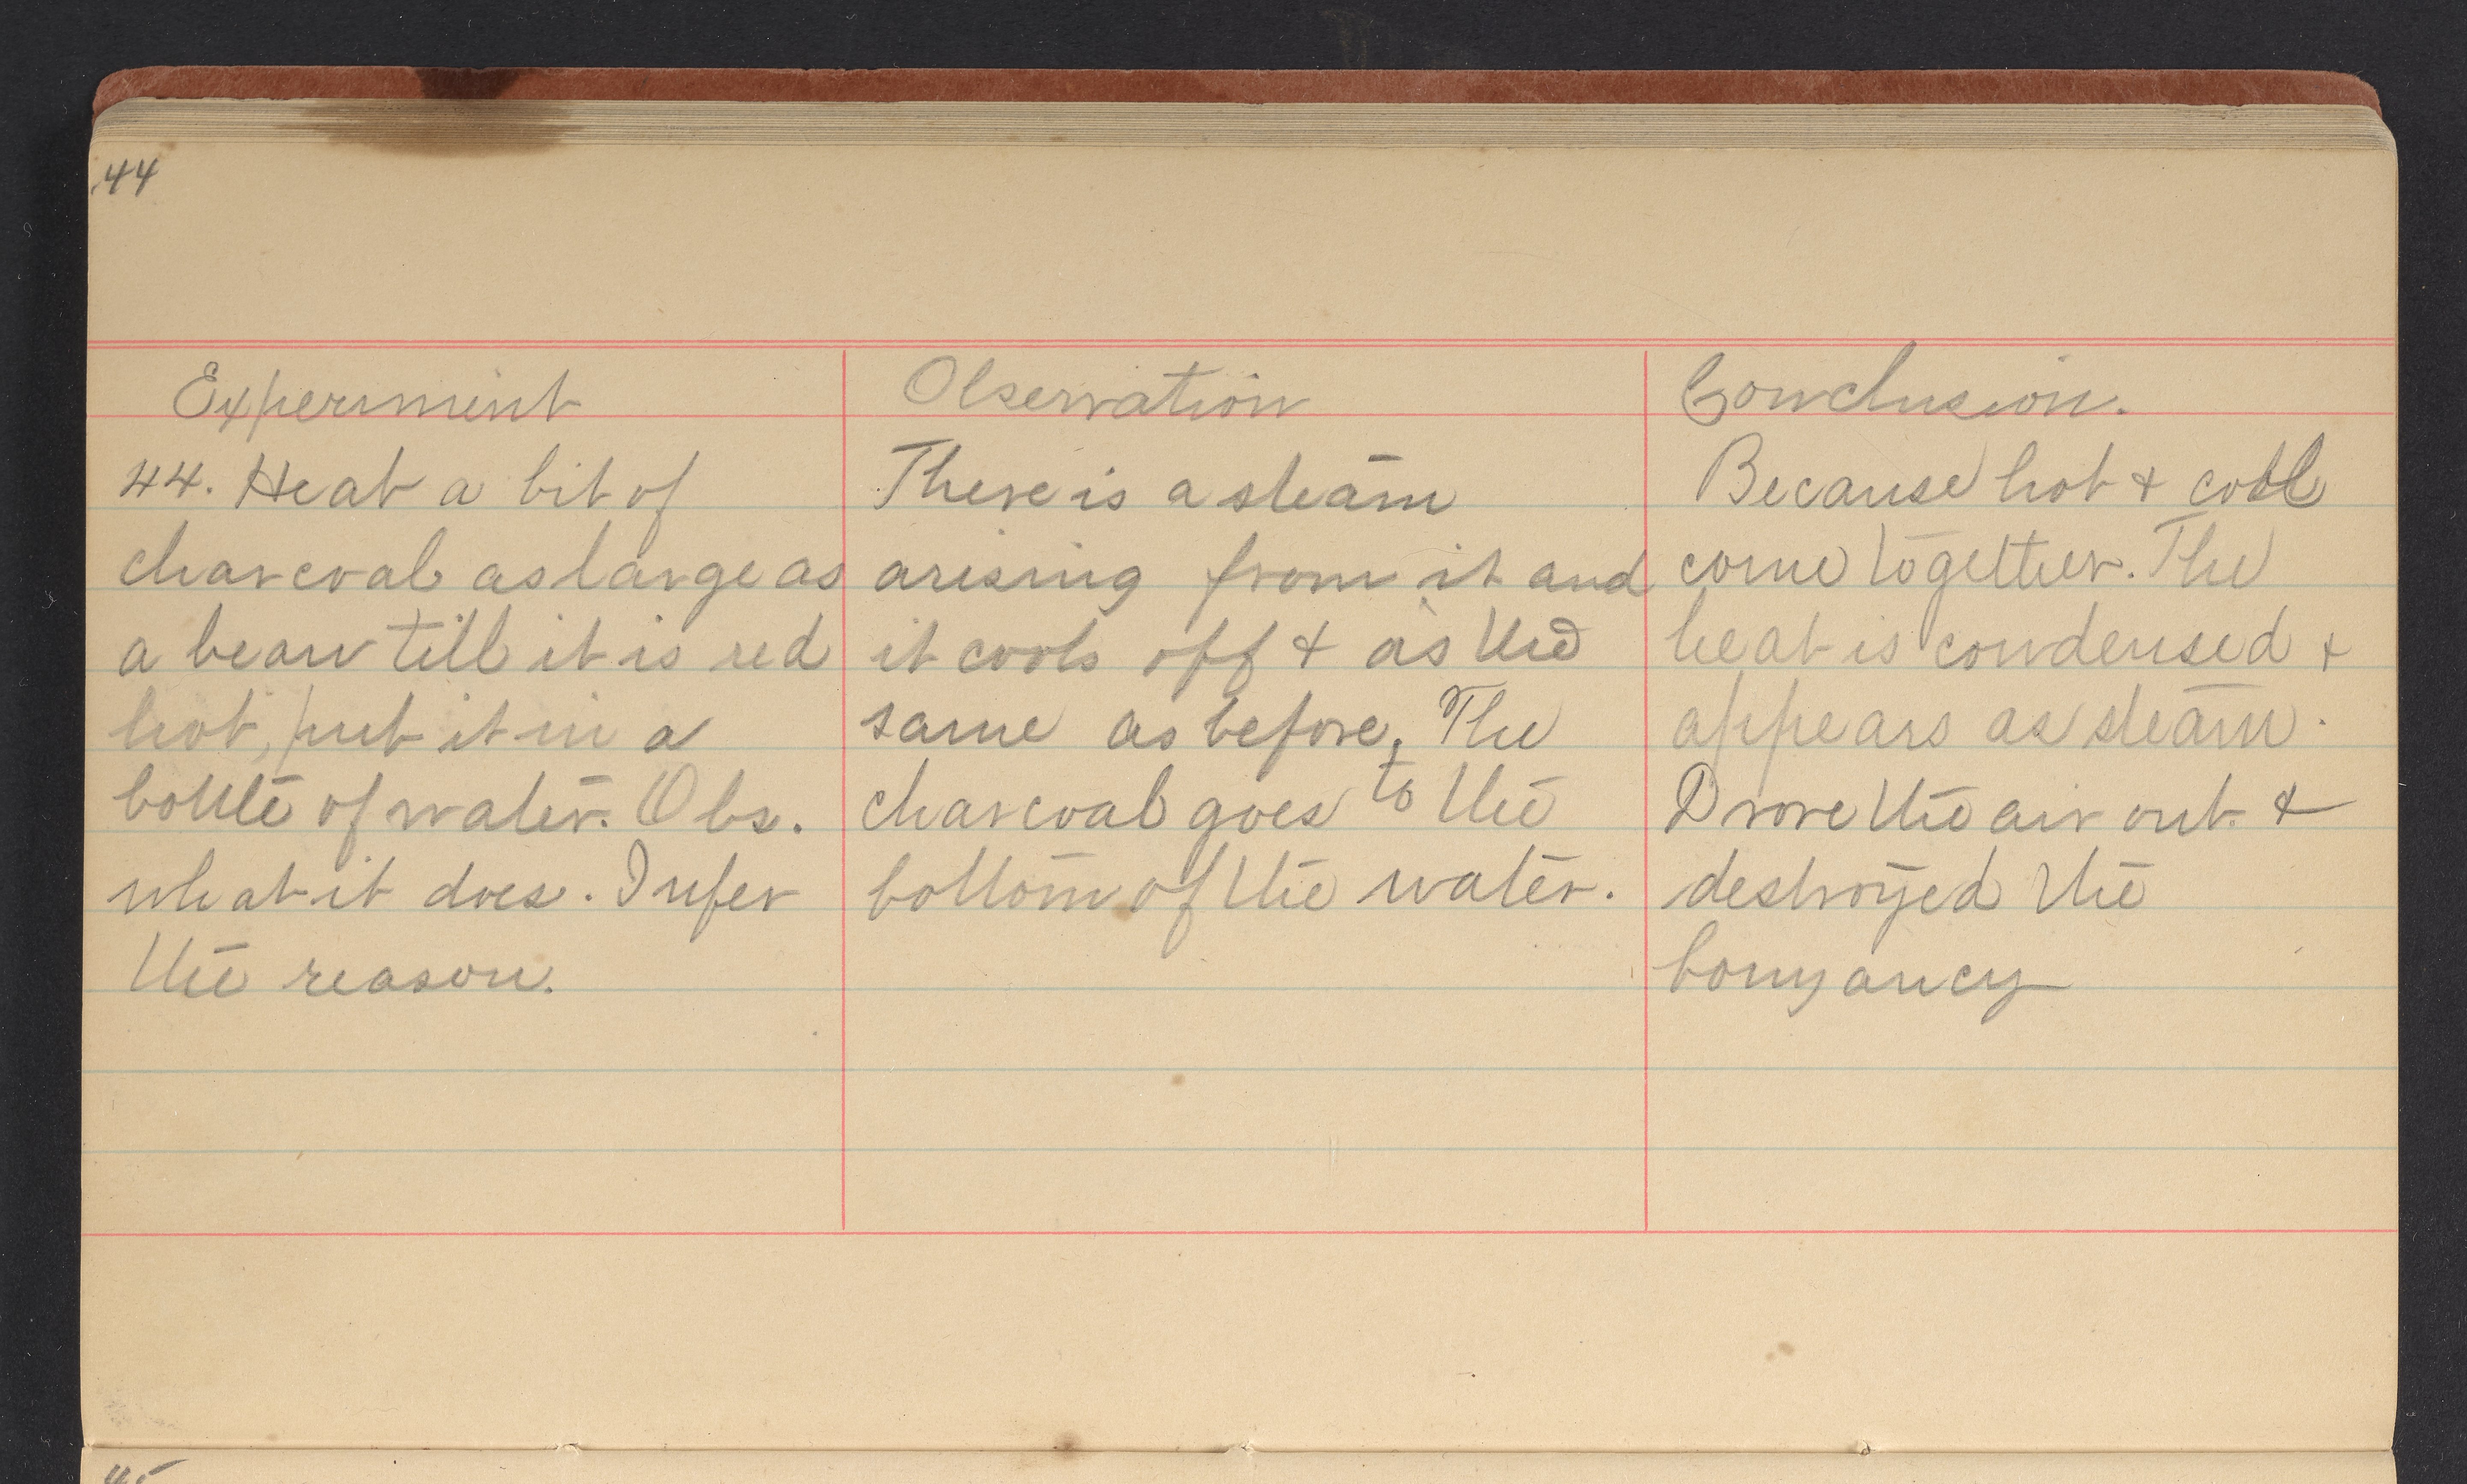 44
Experiment
44. Heat a bit of
charcoal as large as
a bean till it is red
hot, put it in a
bottle of water. Obs.
what it does. Infer
the reason.
Observation
There is a steam
arising from it and
it cools off & as the
same as before. The
charcoal goes to the
bottom of the water.
Conclusion.
Because hot & cold
come together. The
heat is condensed &
appears as steam.
Drove the air out &
destroyed the
bouyancy
45